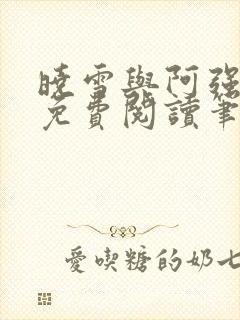 曉雪與阿强
免費閱讀筆
愛喫糖的奶七